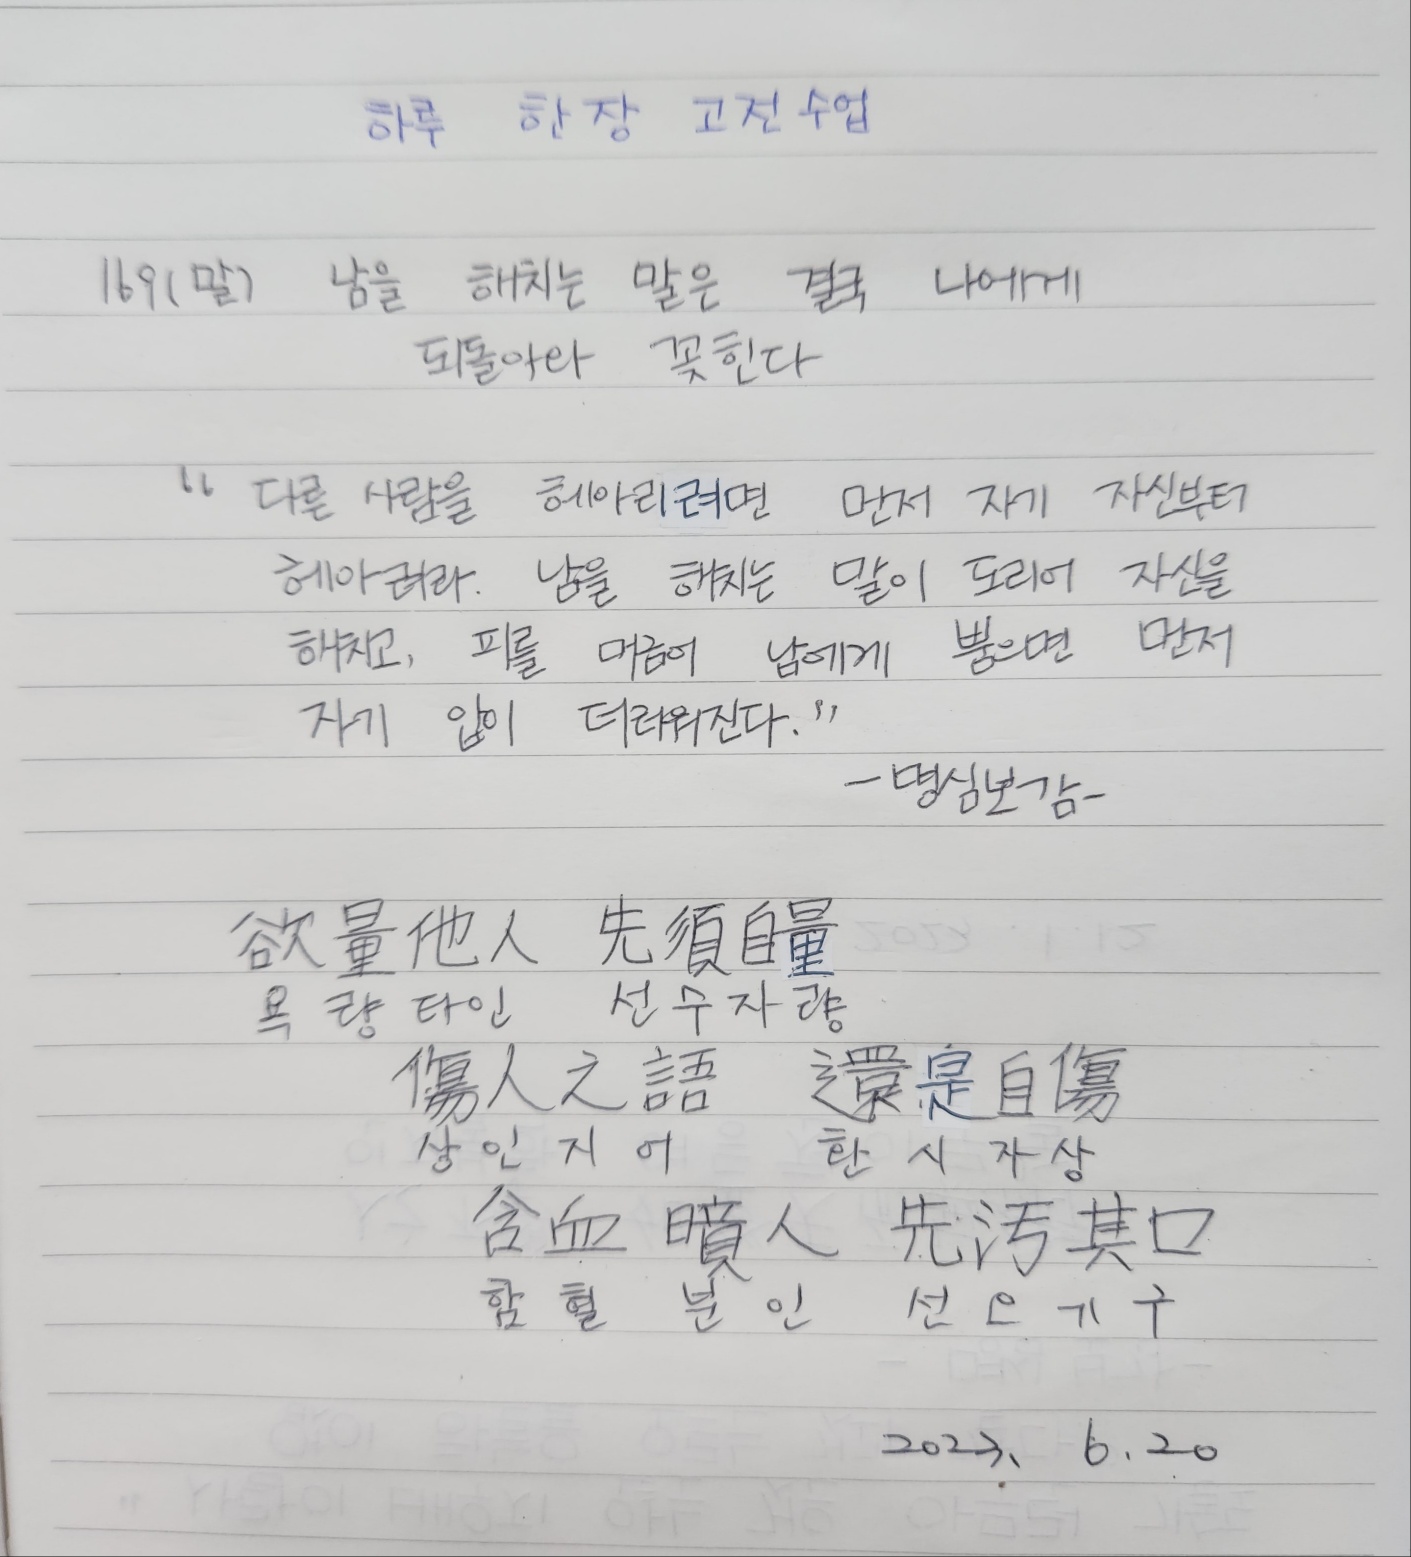 하루 한장 고전수업
169(말) 남을 해치는 말은 결국 나에게
되돌아와 꽂힌다
“ 다른 사람을 헤아리려면 먼저 자기 자신부터
헤아려라. 남을 해치는 말이 도리어 자신을
해치고, 피를 머금어 남에게 뿜으면 먼저
자기 입이 더러워진다.”
-명심보감-
欲量他人 先須自量
욕량타인 선수자량
傷人之語 還是自傷
상인지어 환시자상
含血噴人 先污其口
함혈분인 선오기구
2023. 6.20